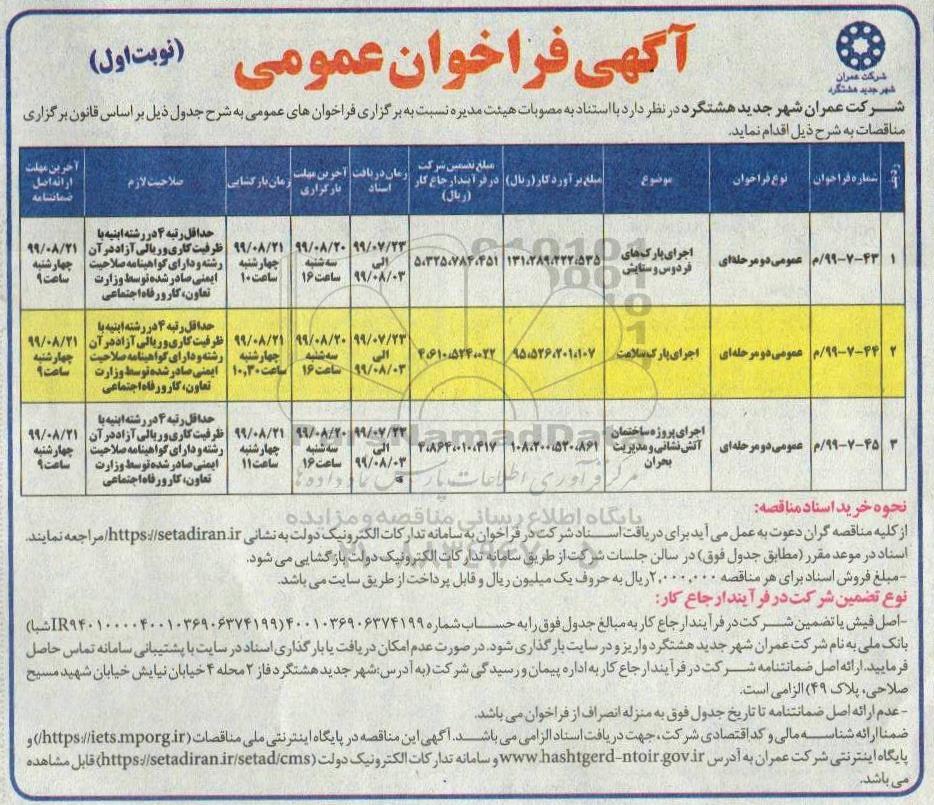 آگهی فراخوان عمومی
(نوبت اول)
شرکت عمران
شهر جدید هشتگرد
شرکت عمران شهر جدید هشتگرد در نظر دارد با استناد به مصوبات هیئت مدیره نسبت به برگزاری فراخوان های عمومی به شرح جدول ذیل بر اساس قانون برگزاری
مناقصات به شرح ذیل اقدام نماید.
ردیف | شماره فراخوان | نوع فراخوان | موضوع | مبلغ برآورد کار (ریال) | مبلغ تضمین شرکت در فرآیند ارجاع کار (ریال) | زمان دریافت اسناد | آخرین مهلت بارگزاری | زمان بازگشایی | صلاحیت لازم | آخرین مهلت ارائه اصل ضمانتنامه
۱ | ۹۹-۷-۴۳/م | عمومی دو مرحله‌ای | اجرای پارک‌های فردوس و ستایش | ۱۳۱،۲۸۹،۲۲۲،۵۳۵ | ۵،۳۲۵،۷۸۴،۴۵۱ | ۹۹/۰۷/۲۳ الی ۹۹/۰۸/۰۳ | ۹۹/۰۸/۲۰ سه‌شنبه ساعت ۱۶ | ۹۹/۰۸/۲۱ چهارشنبه ساعت ۱۰ | حداقل رتبه ۴ در رشته ابنیه با ظرفیت کاری و ریالی آزاد در آن رشته و دارای گواهینامه صلاحیت ایمنی صادر شده توسط وزارت تعاون، کار و رفاه اجتماعی | ۹۹/۰۸/۲۱ چهارشنبه ساعت ۹
۲ | ۹۹-۷-۴۴/م | عمومی دو مرحله‌ای | اجرای پارک سلامت | ۹۵،۵۲۶،۲۰۱،۱۰۷ | ۴،۶۱۰،۵۲۴،۰۲۲ | ۹۹/۰۷/۲۳ الی ۹۹/۰۸/۰۳ | ۹۹/۰۸/۲۰ سه‌شنبه ساعت ۱۶ | ۹۹/۰۸/۲۱ چهارشنبه ساعت ۱۰،۳۰ | حداقل رتبه ۴ در رشته ابنیه با ظرفیت کاری و ریالی آزاد در آن رشته و دارای گواهینامه صلاحیت ایمنی صادر شده توسط وزارت تعاون، کار و رفاه اجتماعی | ۹۹/۰۸/۲۱ چهارشنبه ساعت ۹
۳ | ۹۹-۷-۴۵/م | عمومی دو مرحله‌ای | اجرای پروژه ساختمان آتش‌نشانی و مدیریت بحران | ۱۰۸،۲۰۰،۵۳۰،۸۶۱ | ۴،۸۶۴،۰۱۰،۴۱۷ | ۹۹/۰۷/۲۳ الی ۹۹/۰۸/۰۳ | ۹۹/۰۸/۲۰ سه‌شنبه ساعت ۱۶ | ۹۹/۰۸/۲۱ چهارشنبه ساعت ۱۱ | حداقل رتبه ۴ در رشته ابنیه با ظرفیت کاری و ریالی آزاد در آن رشته و دارای گواهینامه صلاحیت ایمنی صادر شده توسط وزارت تعاون، کار و رفاه اجتماعی | ۹۹/۰۸/۲۱ چهارشنبه ساعت ۹
ParsNamadData
مرکز فرآوری اطلاعات پارس نماد داده‌ها
پایگاه اطلاع رسانی مناقصه و مزایده
نحوه خرید اسناد مناقصه:
از کلیه مناقصه گران دعوت به عمل می آید برای دریافت اسناد شرکت در فراخوان به سامانه تدارکات الکترونیک دولت به نشانی https://setadiran.ir/ مراجعه نمایند.
اسناد در موعد مقرر (مطابق جدول فوق) در سالن جلسات شرکت از طریق سامانه تدارکات الکترونیک دولت بازگشایی می‌شود.
-مبلغ فروش اسناد برای هر مناقصه ۲,۰۰۰,۰۰۰ ریال به حروف یک میلیون ریال و قابل پرداخت از طریق سایت می باشد.
نوع تضمین شرکت در فرآیند ارجاع کار:
-اصل فیش یا تضمین شرکت در فرآیند ارجاع کار به مبالغ جدول فوق را به حساب شماره ۴۰۰۱۰۳۶۹۰۶۳۷۴۱۹۹ (IR۹۴۰۱۰۰۰۰۴۰۰۱۰۳۶۹۰۶۳۷۴۱۹۹ شبا)
بانک ملی به نام شرکت عمران شهر جدید هشتگرد واریز و در سایت بارگذاری شود. در صورت عدم امکان دریافت یا بارگذاری اسناد در سایت با پشتیبانی سامانه تماس حاصل
فرمایید. ارائه اصل ضمانتنامه شرکت در فرآیند ارجاع کار به اداره پیمان و رسیدگی شرکت (به آدرس: شهر جدید هشتگرد فاز ۲ محله ۴ خیابان نیایش خیابان شهید مسیح
صلاحی، پلاک ۴۹) الزامی است.
-عدم ارائه اصل ضمانتنامه تا تاریخ جدول فوق به منزله انصراف از فراخوان می باشد.
ضمنا ارائه شناسه مالی و کد اقتصادی شرکت، جهت دریافت اسناد الزامی می باشد. آگهی این مناقصه در پایگاه اینترنتی ملی مناقصات (https://iets.mporg.ir/) و
پایگاه اینترنتی شرکت عمران به آدرس www.hashtgerd-ntoir.gov.ir و سامانه تدارکات الکترونیک دولت (https://setadiran.ir/setad/cms) قابل مشاهده
می باشد.